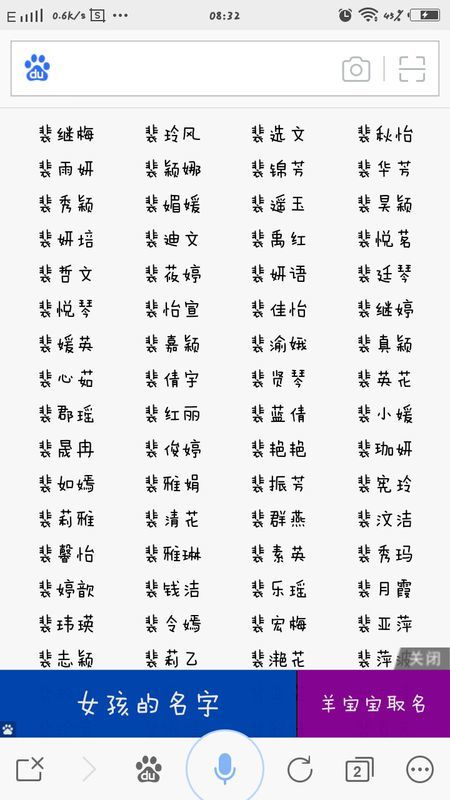 0.6K/s 08:32 43%
du
裴继梅 裴玲风 裴选文 裴秋怡
裴雨妍 裴颖娜 裴锦芳 裴华芳
裴秀颖 裴媚媛 裴遥玉 裴昊颖
裴妍培 裴迪文 裴禹红 裴悦茗
裴哲文 裴莜婷 裴妍语 裴廷琴
裴悦琴 裴怡宣 裴佳怡 裴继婷
裴媛英 裴嘉颖 裴渝娥 裴真颖
裴心茹 裴倩宇 裴贤琴 裴英花
裴郡瑶 裴红丽 裴蓝倩 裴小媛
裴晟冉 裴俊婷 裴艳艳 裴珈妍
裴如嫣 裴雅娟 裴振芳 裴宪玲
裴莉雅 裴清花 裴群燕 裴汶洁
裴馨怡 裴雅琳 裴素英 裴秀玛
裴婷歆 裴钱洁 裴乐瑶 裴月霞
裴玮瑛 裴令嫣 裴宏梅 裴亚萍
裴志颖 裴莉乙 裴滟花 裴萍
关闭
女孩的名字 羊宝宝取名
du 2